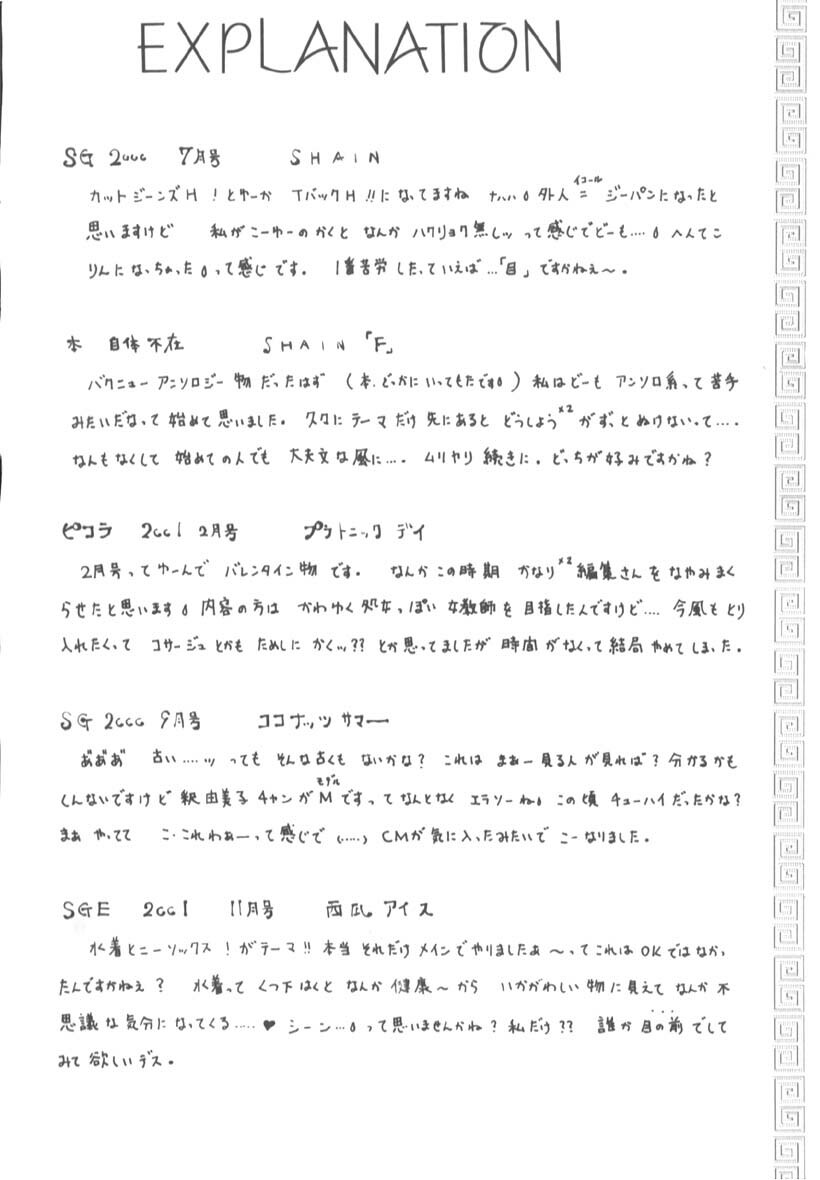 EXPLANATION
SG 2000 7月号 SHAIN
カットジーンズH!とゆーか TバックH!!になってますね ナハハ。外人=ジーパンになったと
イコール
思いますけど 私がこーゆーのかくと なんか ハクリョク無しッ って感じでどーも....。へんてこ
りんになっちゃった。って感じです。 1番苦労したっていえば...「目」ですかねぇ~。
本 自体不在 SHAIN「F」
バクニューアンソロジー物だったはず (本、どっかにいってもたです。) 私はどーも アンソロ系って苦手
みたいだなって 始めて思いました。 テーマだけ先にあると どうしよう×2がずっとぬけないって....
なんもなくして 始めての人でも 大丈夫な風に.... ムリヤリ続きに。どっちが好みですかね?
ピコラ 2001 2月号 プラトニック デイ
2月号ってゆーんで バレンタイン物です。 なんかこの時期 かなり×2編集さんをなやみまく
らせたと思います。内容の方は かわゆく処女っぽい女教師を目指したんですけど.... 今風もとり
入れたくって コサージュとかも ためしに かくッ?? とか思ってましたが 時間がなくって結局やめてしまった。
SG 2000 9月号 ココナッツ サマー
あ゛あ゛あ゛ 古い....ッ っても そんな古くもないかな? これは まぁー見る人が見れば?分かるかも
しんないですけど 釈由美子チャンがMですって なんとなく エラソーね。この頃 チューハイだったかな?
モデル
まぁ やってて こ・これわぁーって感じで(.....) CMが気に入ったみたいで こーなりました。
SGE 2001 11月号 西瓜アイス
水着とニーソックス!がテーマ!!本当 それだけメインでやりましたぁ~って これはOKではなかっ
たんですかねぇ? 水着って くつ下はくと なんか 健康~から いかがわしい物に見えて なんか不
思議な気分になってくる.....♥ シーン...。って思いませんかね?私だけ?? 誰か目の前でして
みて欲しいデス。